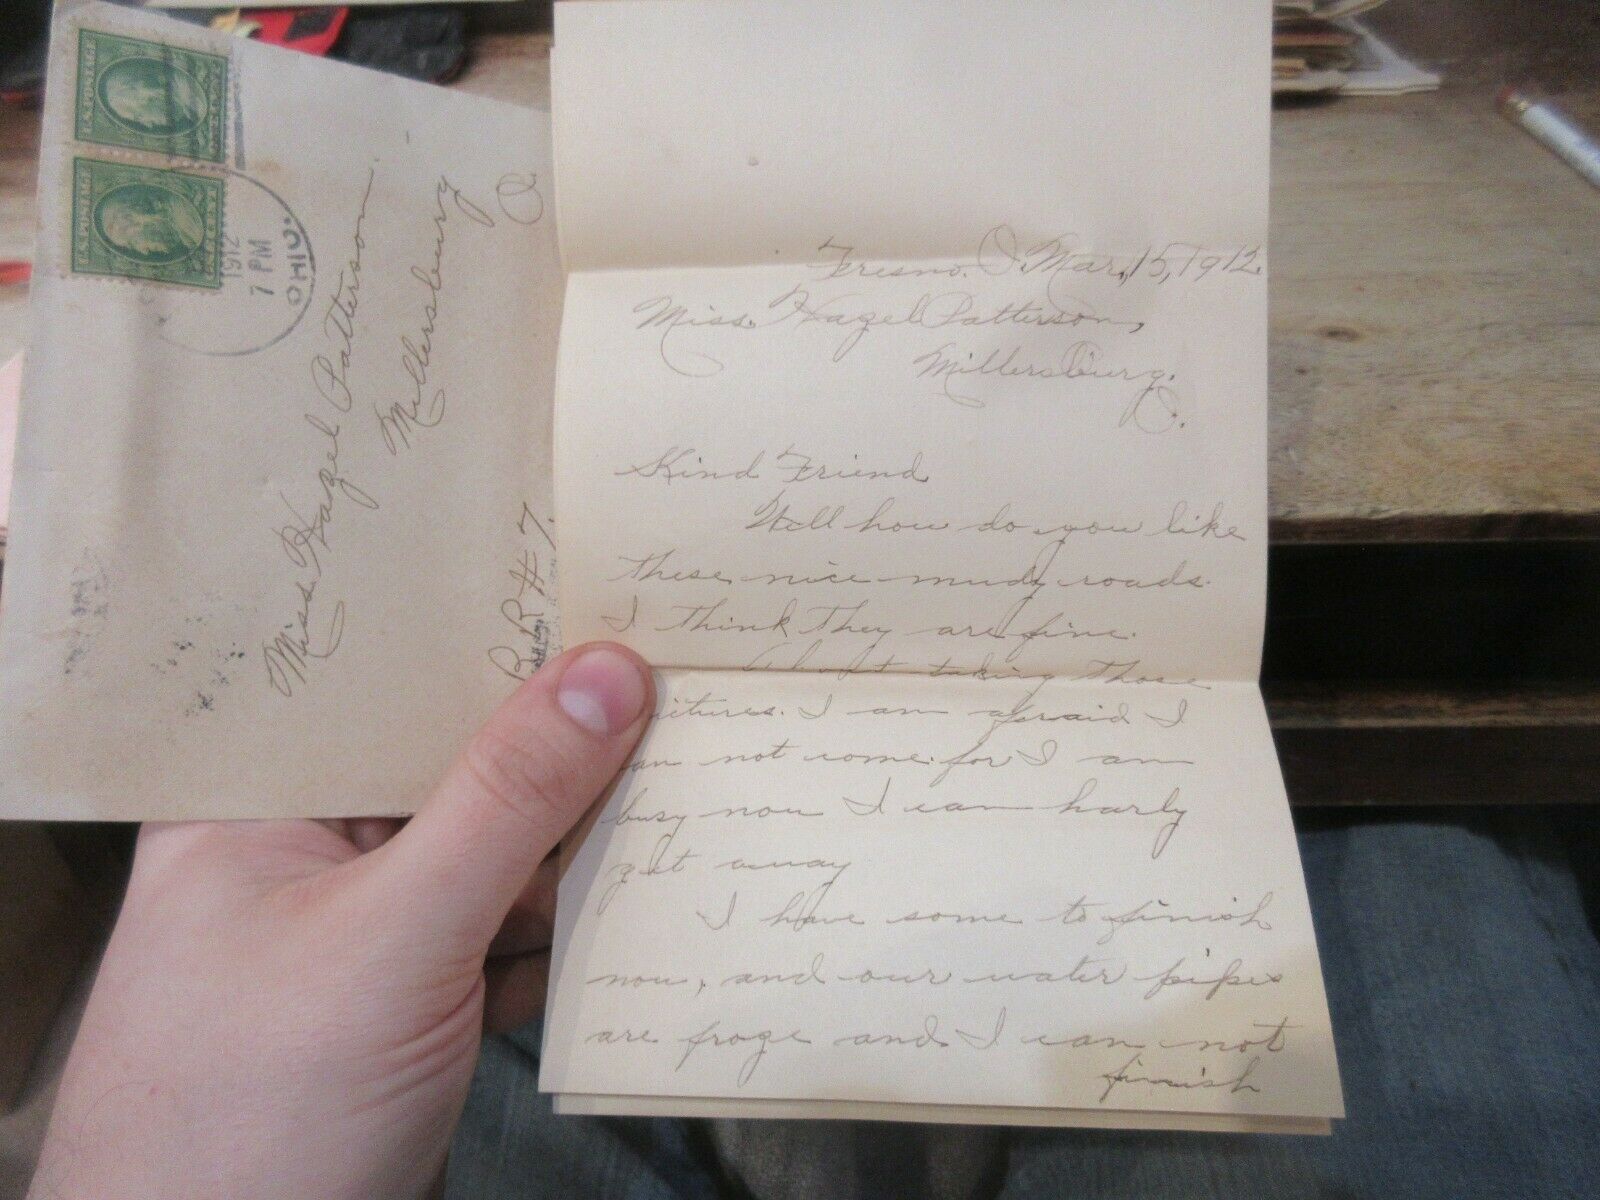 U.S. POSTAGE
U.S. POSTAGE
1912
7 PM
OHIO.
Miss. Hazel Patterson.
Millersburg
O.
R R # 7.
Fresno. O. Mar. 15, 1912.
Miss. Hazel Patterson,
Millersburg.
O.
Kind Friend
Well how do you like
these nice mudy roads.
I think they are fine.
About taking those
pictures. I am afraid I
can not come. for I am
busy now I can harly
get away
I have some to finish
now, and our water pipes
are froze and I can not
finish